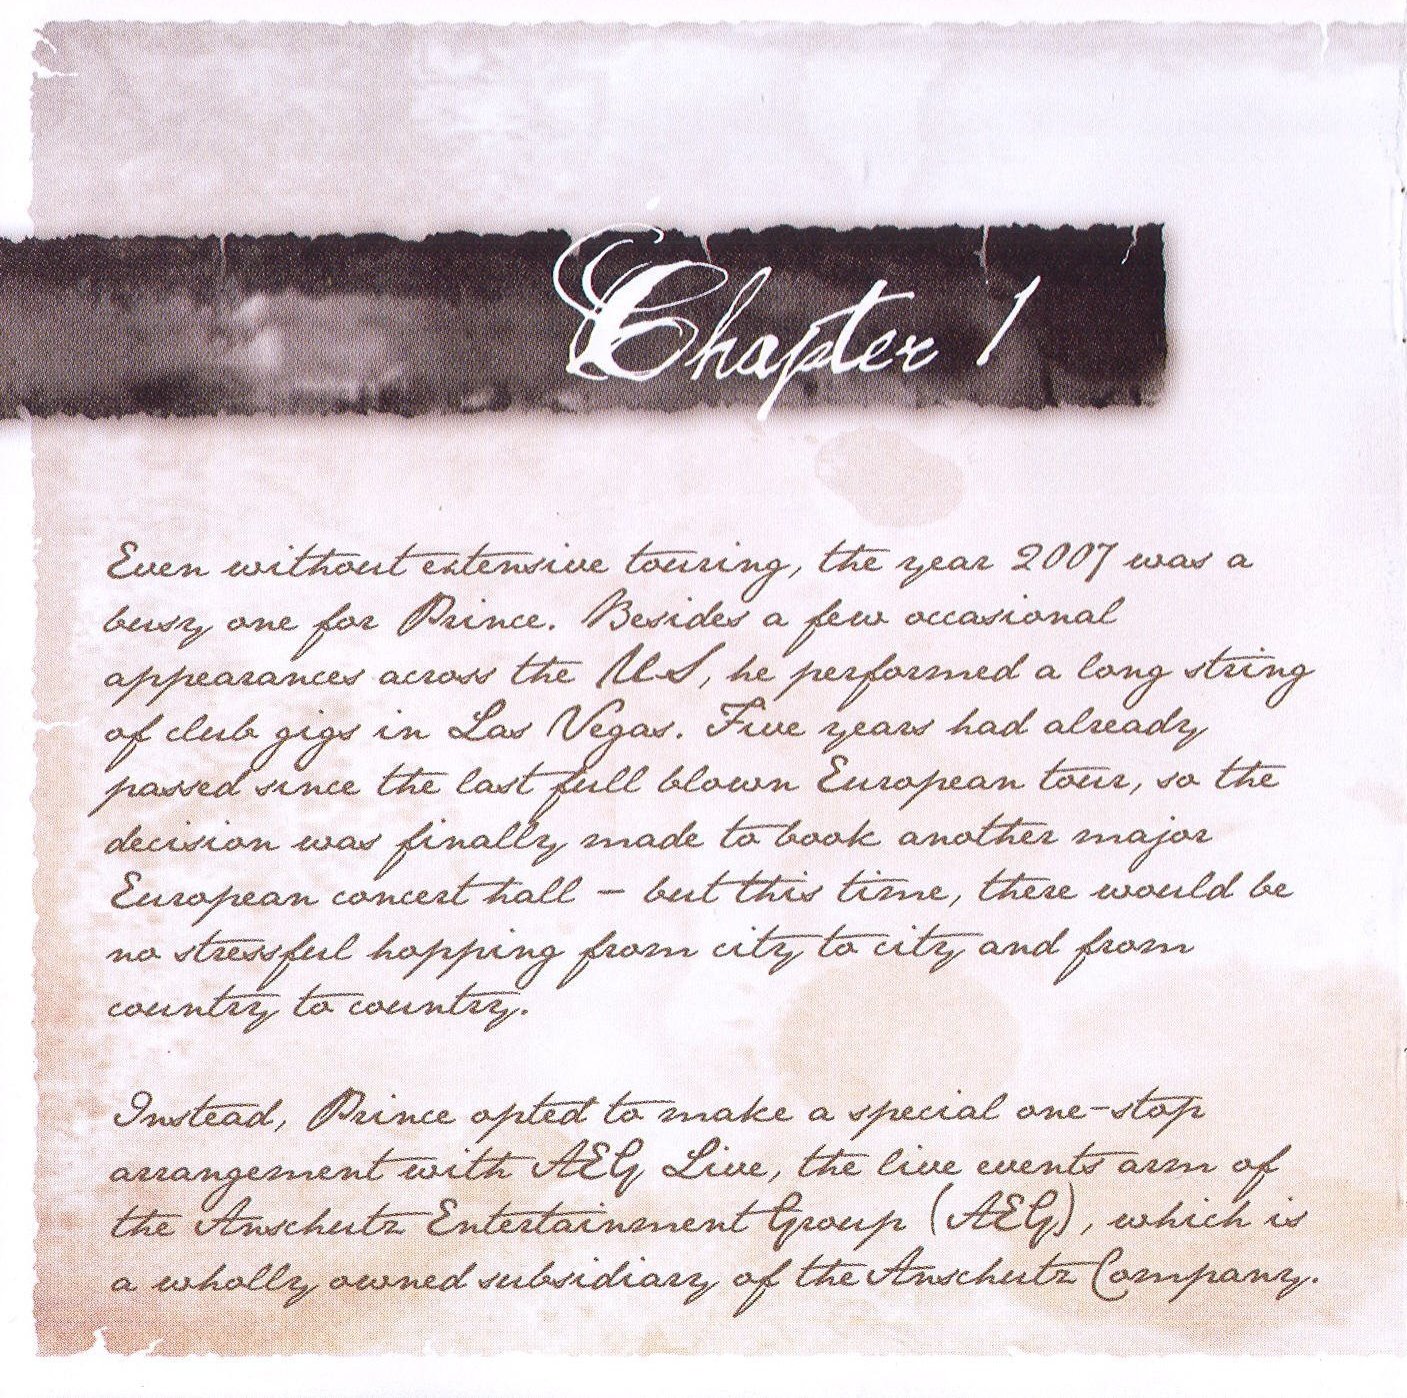 Chapter 1
Even without extensive touring, the year 2007 was a
busy one for Prince. Besides a few occasional
appearances across the US, he performed a long string
of club gigs in Las Vegas. Five years had already
passed since the last full blown European tour, so the
decision was finally made to book another major
European concert hall - but this time, there would be
no stressful hopping from city to city and from
country to country.
Instead, Prince opted to make a special one-stop
arrangement with AEG Live, the live events arm of
the Anschutz Entertainment Group (AEG), which is
a wholly owned subsidiary of the Anschutz Company.